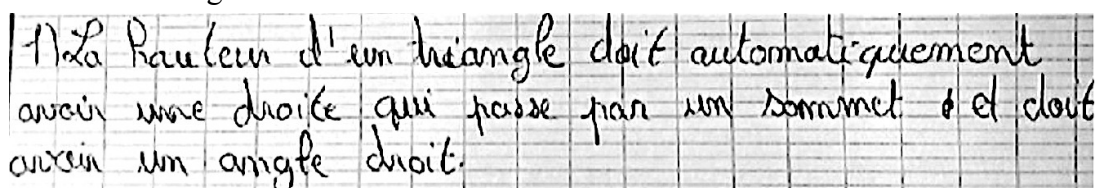 1) La hauteur d'un triangle doit automatiquement
avoir une droite qui passe par un sommet et doit
avoir un angle droit.